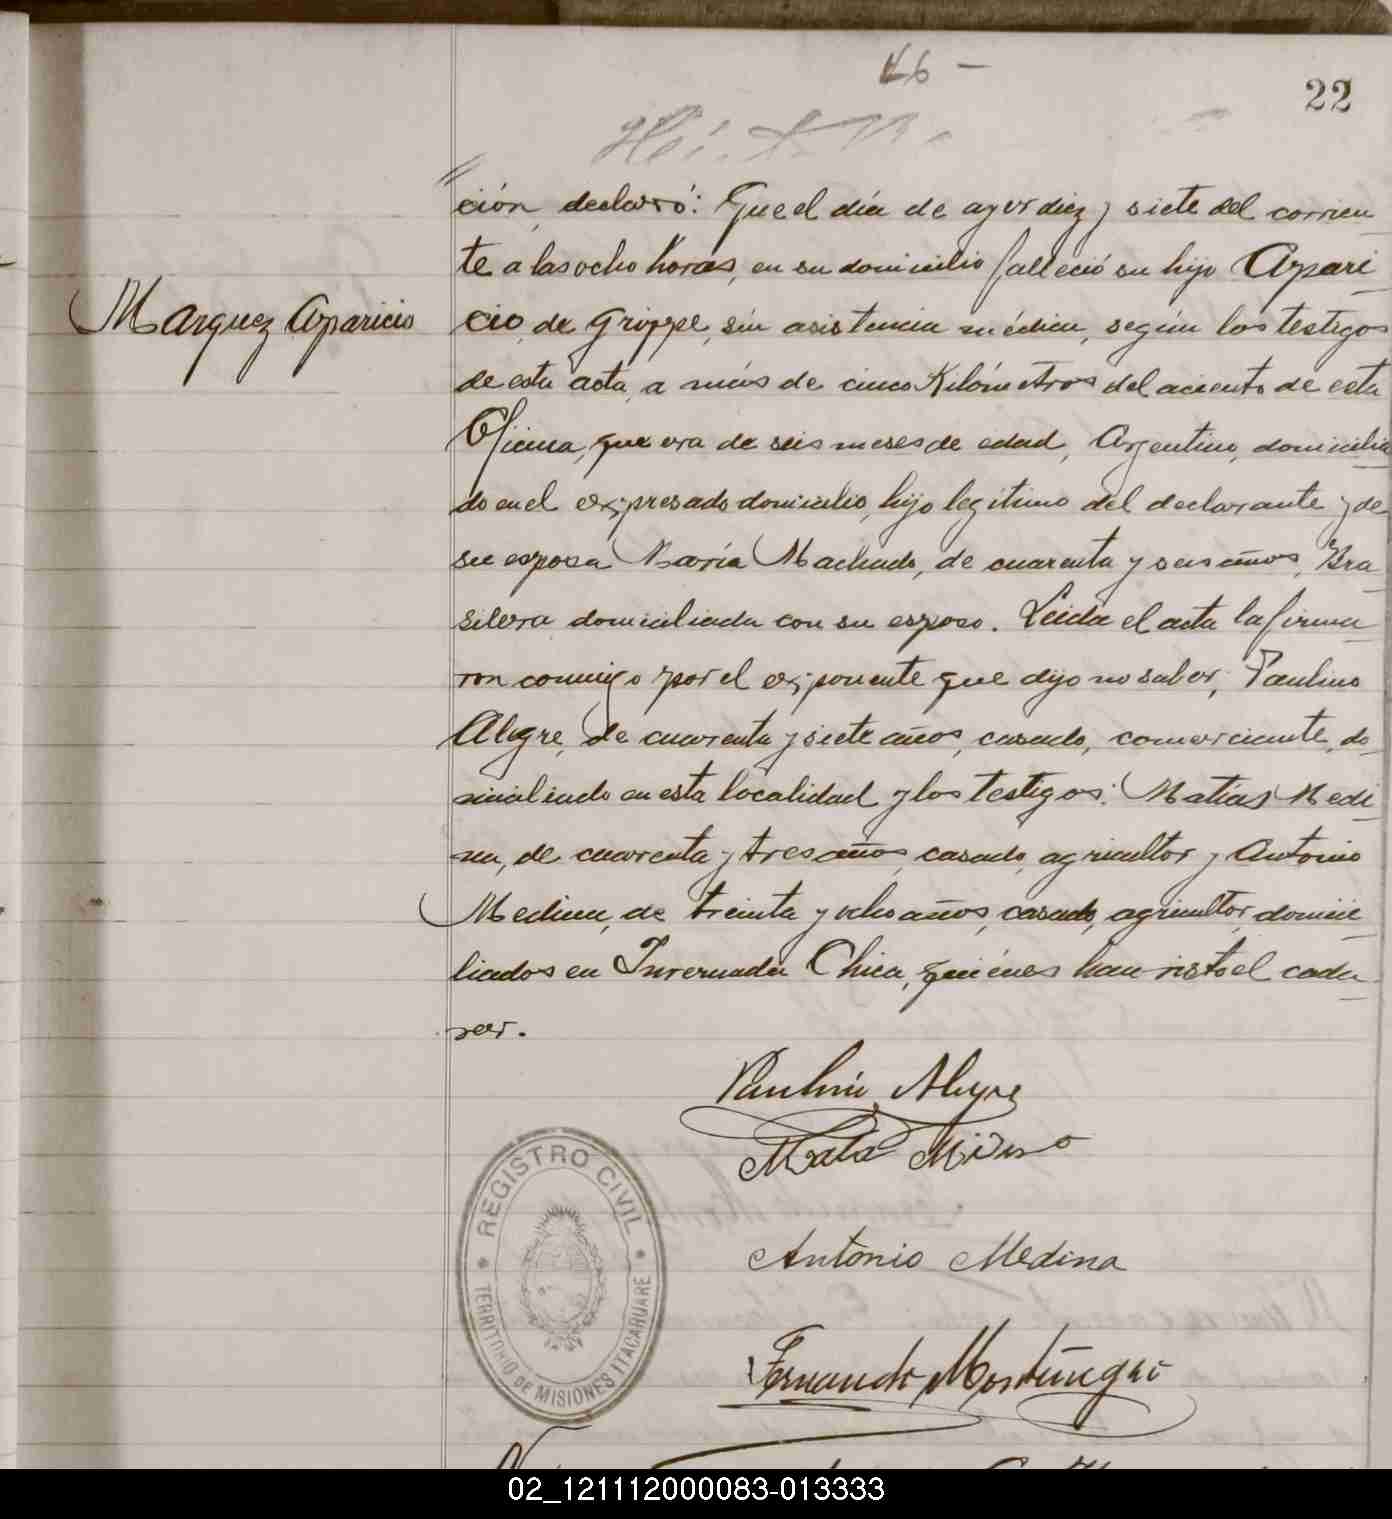 46 -
22
ción, declaró: Que el día de ayer diez y siete del corrien
te a las ocho horas, en su domicilio falleció su hijo Apari
Marquez Aparicio
cio, de Grippe, sin asistencia médica, según los testigos
de esta acta, a más de cinco Kilómetros del aciento de esta
Oficina, que era de seis meses de edad, Argentino, domicilia
do en el expresado domicilio, hijo legítimo del declarante y de
su esposa María Machado, de cuarenta y seis años, Bra
silera domiciliada con su esposo. Leida el acta la firma
ron conmigo por el exponente que dijo no saber, Paulino
Alegre, de cuarenta y siete años, casado, comerciante, do
miciliado en esta localidad y los testigos: Matías Medi
na, de cuarenta y tres años, casado, agricultor y Antonio
Medina, de treinta y ocho años, casado, agricultor, domici
liados en Invernada Chica, quiénes han visto el cada
ver.
Paulino Alegre
Antonio Medina
REGISTRO CIVIL
TERRITORIO DE MISIONES ITACARUARE
Fernando Montenegro
02_121112000083-013333